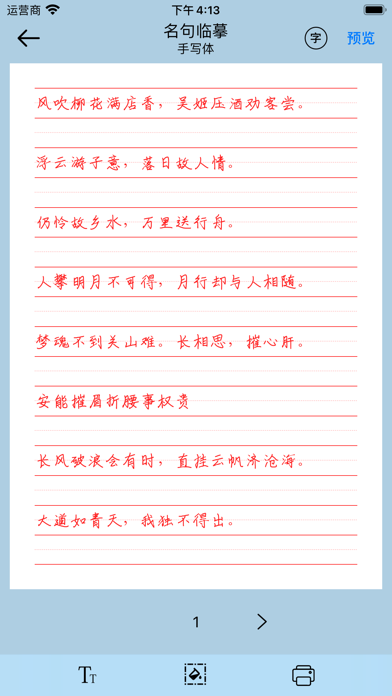 运营商 下午4:13
名句临摹
手写体
字
预览
风吹柳花满店香，吴姬压酒劝客尝。
浮云游子意，落日故人情。
仍怜故乡水，万里送行舟。
人攀明月不可得，月行却与人相随。
梦魂不到关山难。长相思，摧心肝。
安能摧眉折腰事权贵
长风破浪会有时，直挂云帆济沧海。
大道如青天，我独不得出。
1
TT